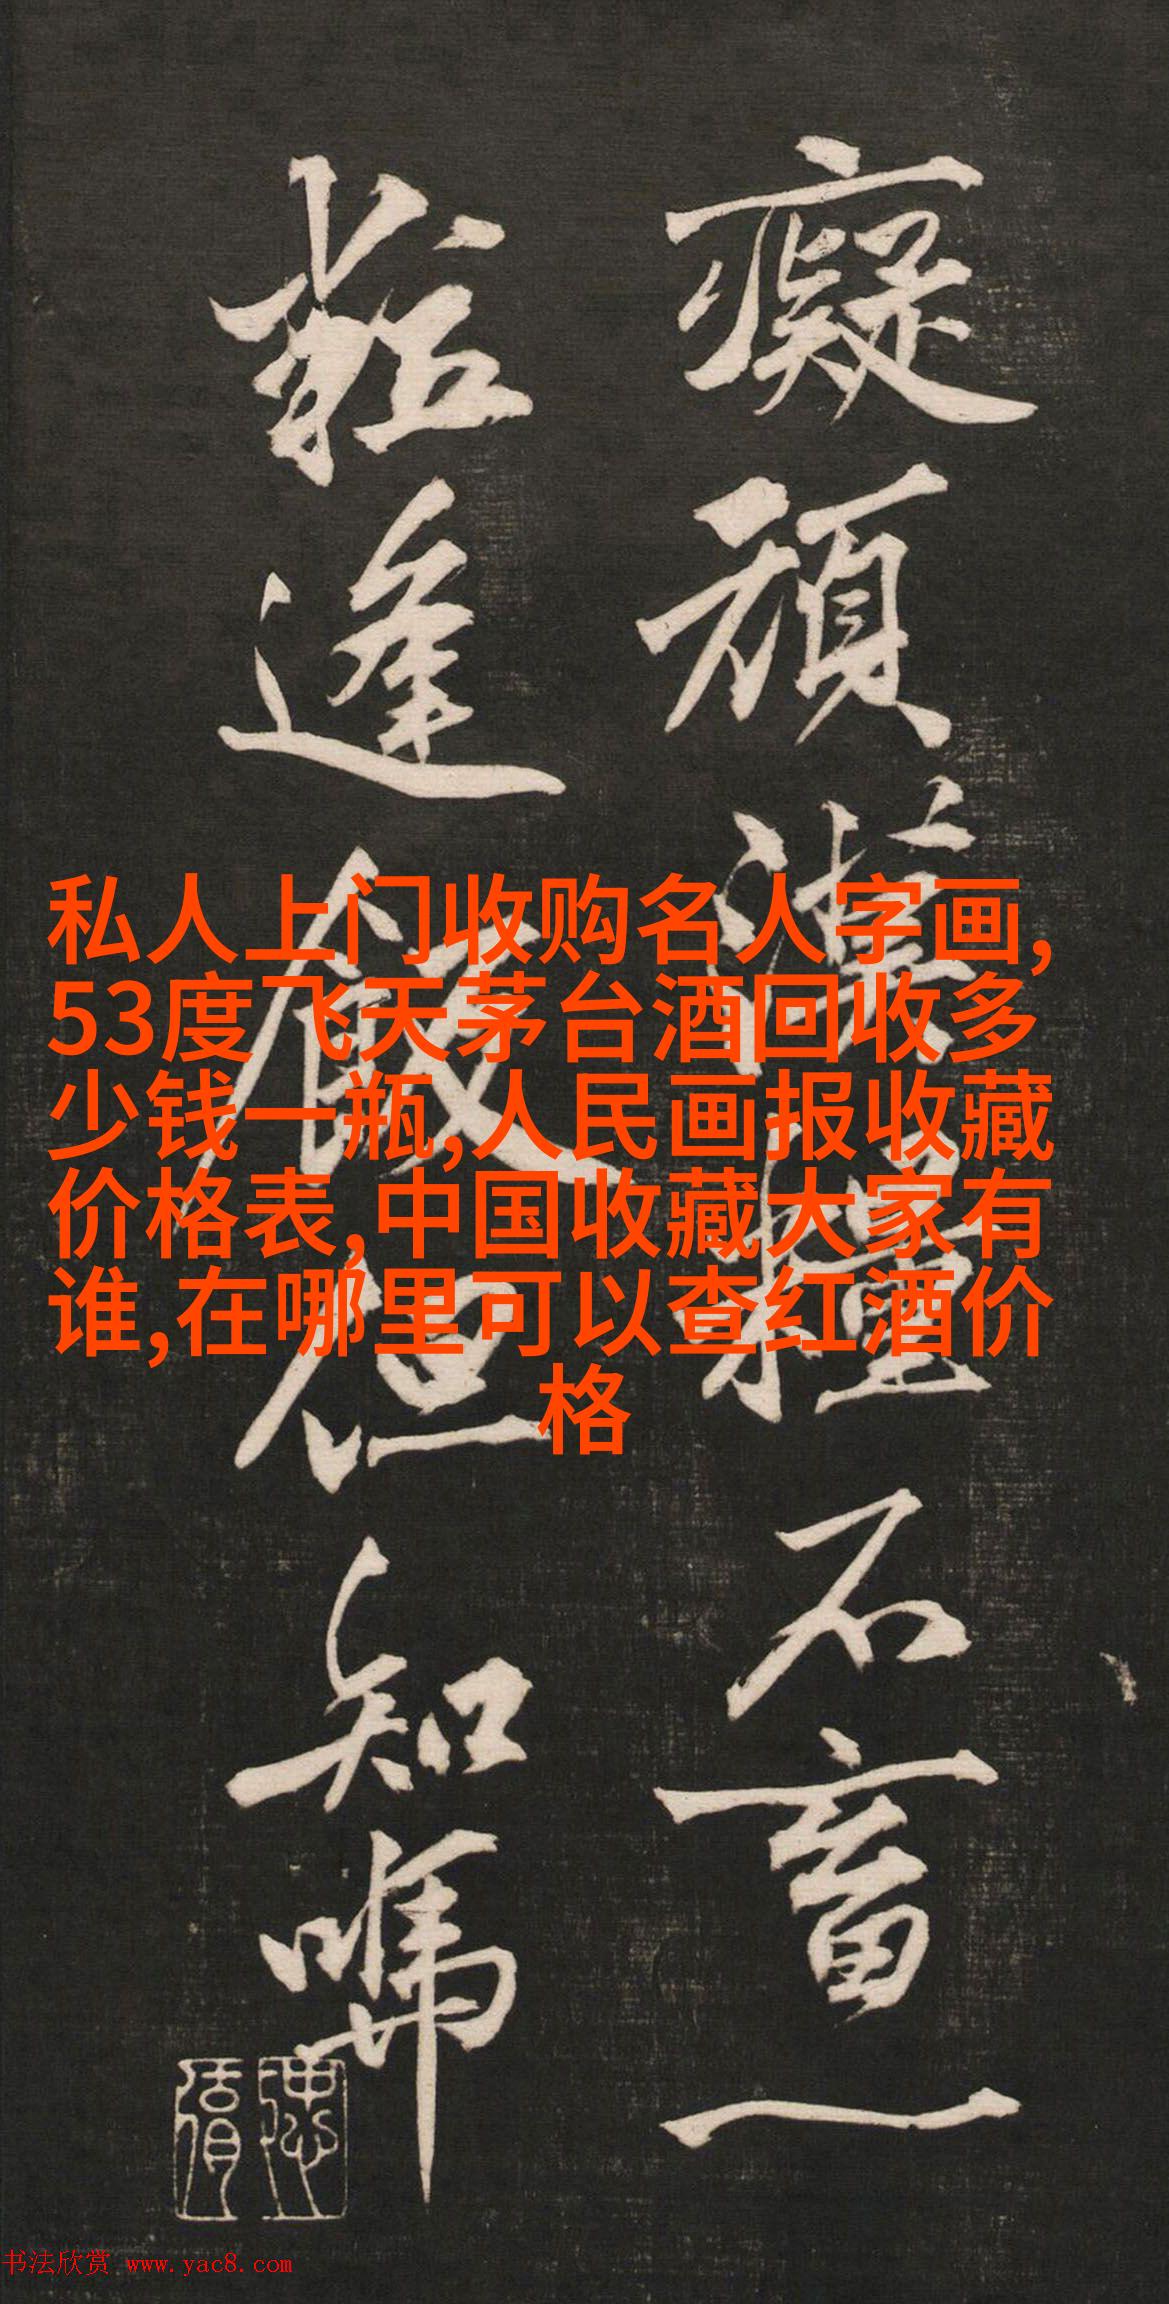 癡頑漢種不畜一
私人上门收购名人字画,
53度飞天茅台酒回收多
少钱一瓶,人民画报收藏
价格表,中国收藏大家有
谁,在哪里可以查红酒价
格
逢飯但知嚼
书法欣赏 www.yac8.com